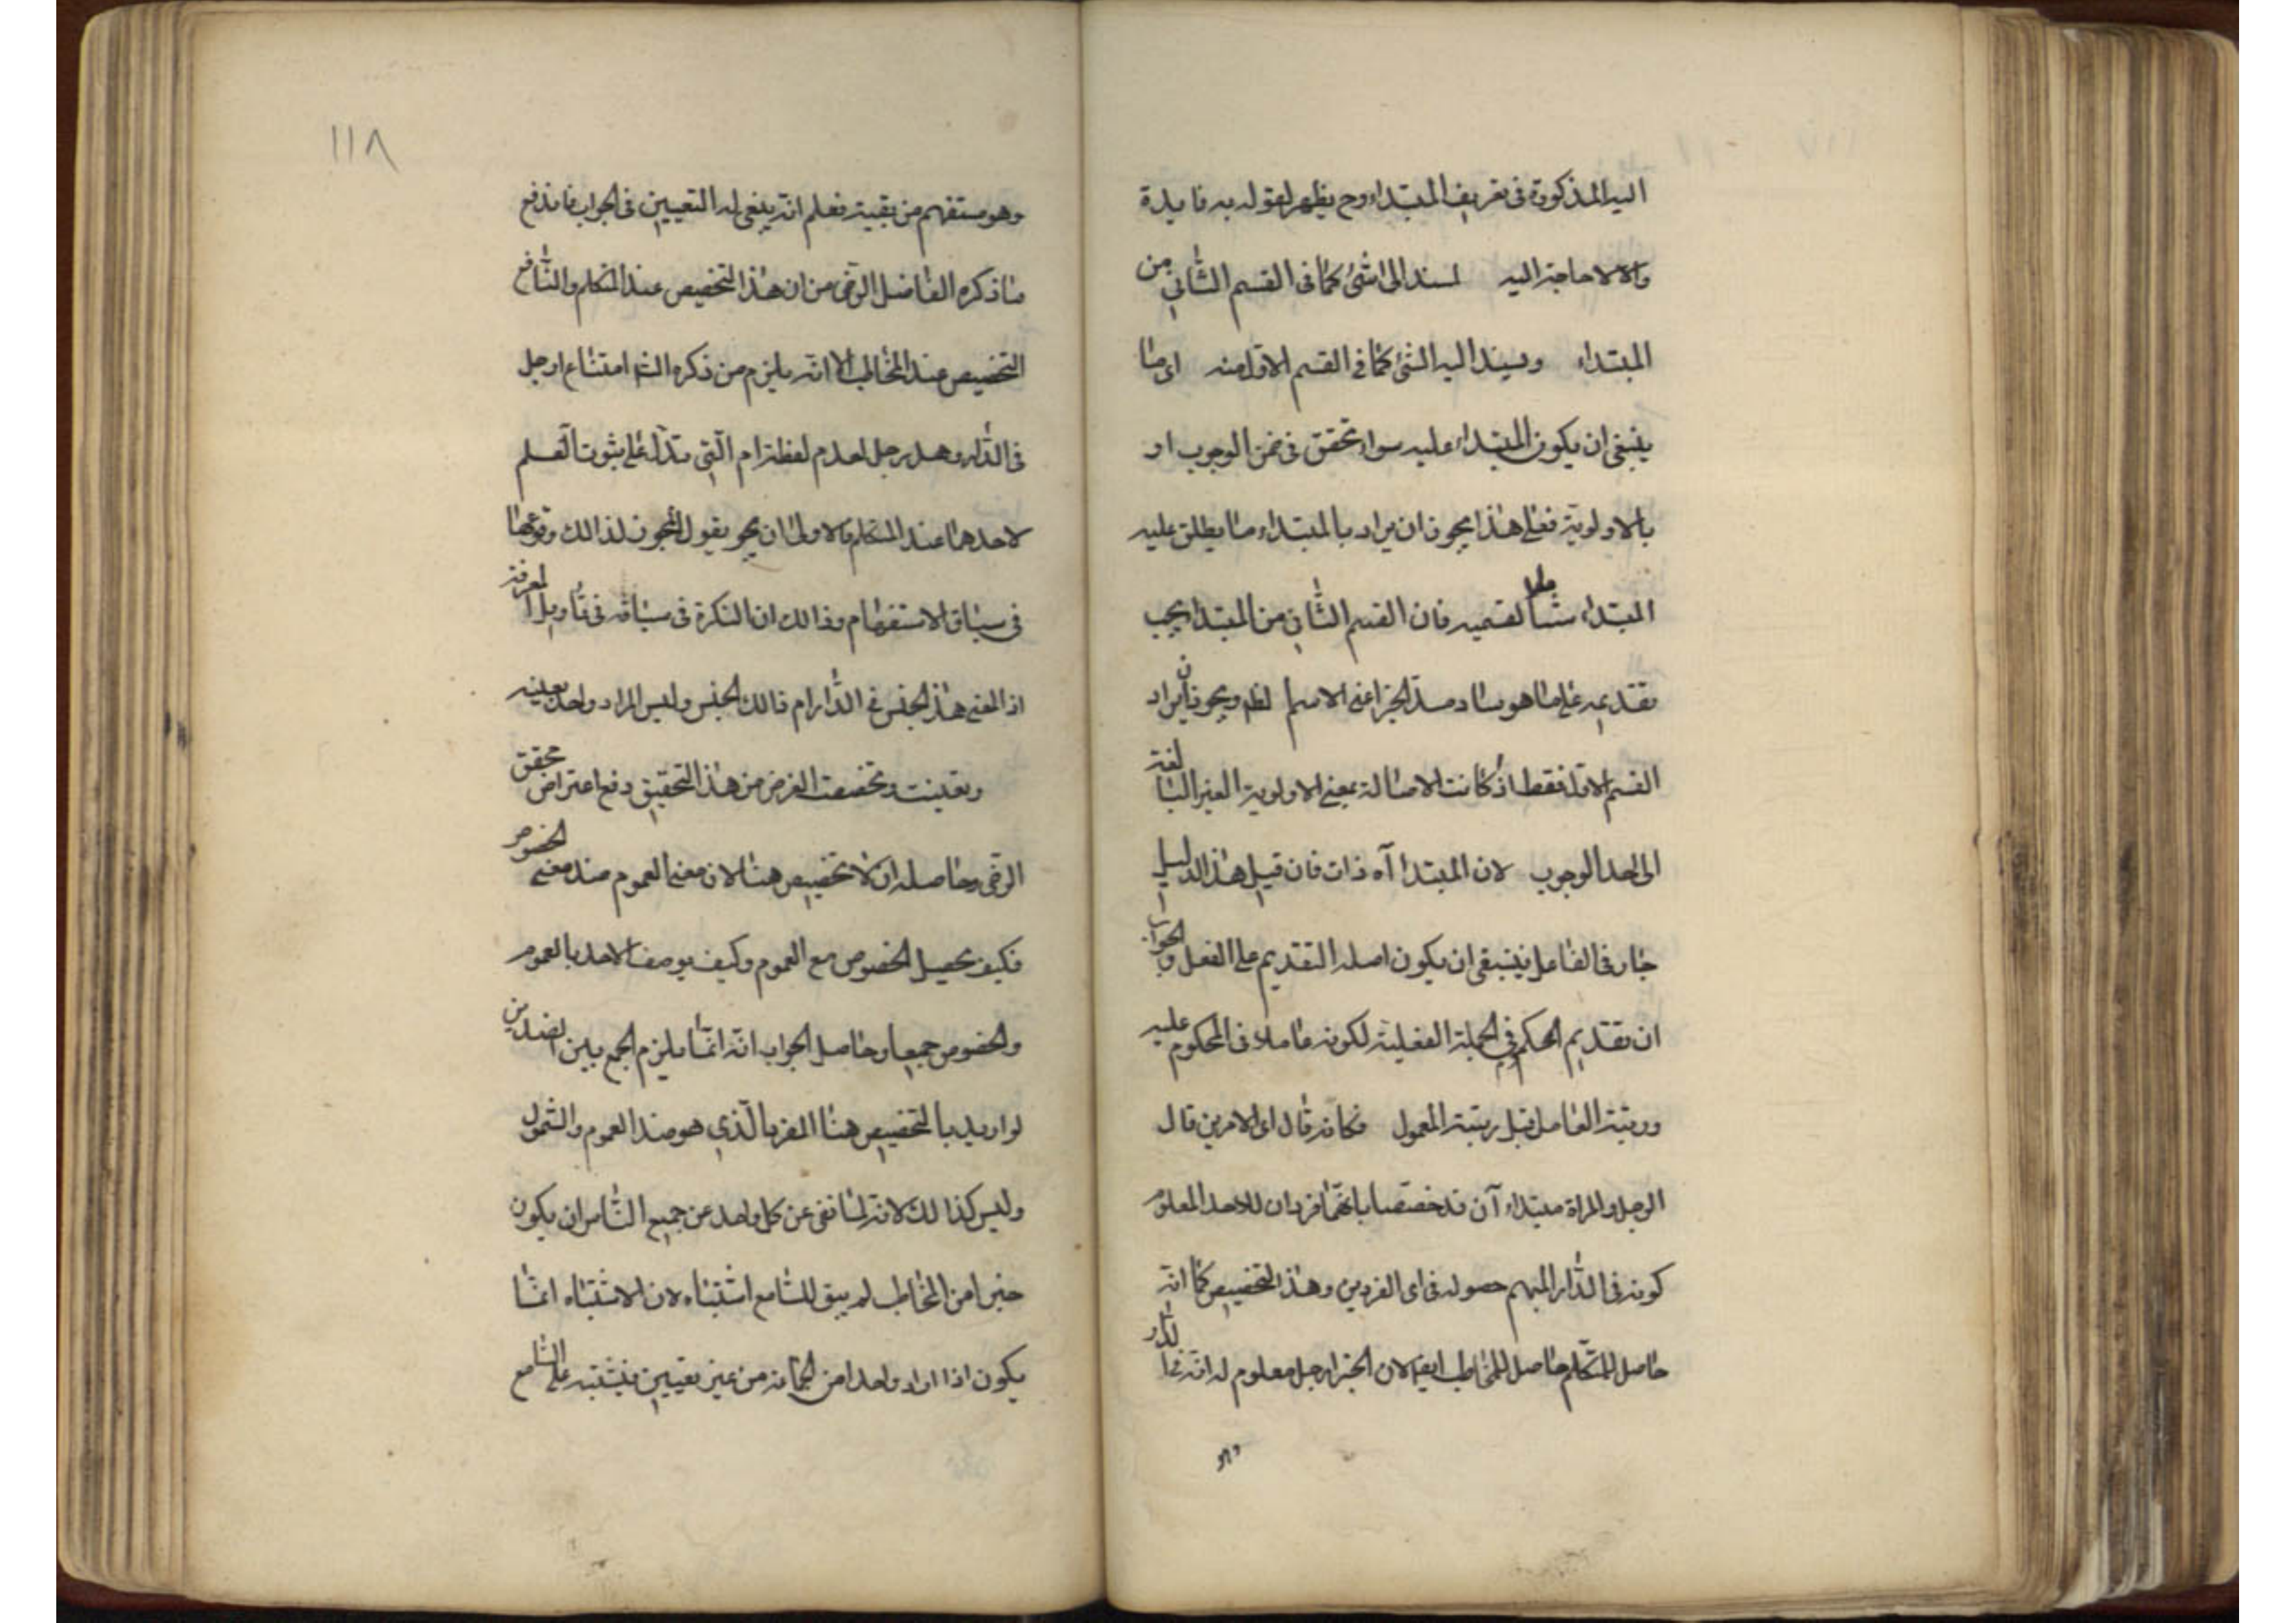 اليه المذكورة فى تعريف المبتداء وح يظهر لقوله به فايدة
والا لا حاجة اليه لسند الى شئ كما فى القسم الثانى من
المبتداء ويسند اليه الشئ كما فى القسم الاول منه اى ما
ينبغى ان يكون المبتداء عليه سواء تحقق فى ضمن الوجوب او
بالاولوية فعلى هذا يجوز ان يراد بالمبتداء ما يطلق عليه
المبتداء شاملا لقسميه فان القسم الثانى من المبتدا يجب
تقديمه على ما هو ساد مسد الخبر اعنى الاسم الظ ويجوز ان يراد
القسم الاول فقط اذ كانت الاصالة بمعنى الاولوية الغير البالغة
الى الحد الوجوب لان المبتدا آه ذات فان قيل هذا الدليل
جار فى الفاعل فينبغى ان يكون اصله التقديم على الفعل والجواب
ان تقديم الحكم فى الجملة الفعلية لكونه عاملا فى المحكوم عليه
ورتبة العامل قبل رتبة المعمول فكانه قال اى الامرين قال
الرجل والمراة مبتداء آن قد خصصا بانهما فردان للاحد المعلوم
كونه فى الدار المبهم حصوله فى اى الفردين وهذا التخصيص كما انه
حاصل للمتكلم حاصل للمخاطب ايضا لان الخبر ارجل معلوم له انه فى الدار
وهو
١١٨
وهو مستفهم من بقيته فعلم انه ينبغى له التعيين فى الجواب فاندفع
ما ذكره الفاضل الرضى من ان هذا التخصيص عند المتكلم والنافع
التخصيص عند المخاطب الا انه يلزم من ذكره الش امتناع ارجل
فى الدار وهل رجل لعدم لفظة ام التى تدل على ثبوت العلم
لاحدهما عند المتكلم فالاولى ان يقول المجوز لذالك وقوعها
فى سياق الاستفهام وذالك ان النكرة فى سياقه فى تأويل المعرفة
اذ المعنى هذا الجنس فى الدار ام ذالك الجنس وليس المراد واحد بعينه
وتعينت وتخصصت الغرض من هذا التحقيق دفع اعتراض محقق
الرضى وحاصله ان لا تخصيص هنا لان معنى العموم ضد معنى الخصوص
فكيف يحصل الخصوص مع العموم وكيف يوصف الاحد بالعموم
والخصوص جميعا وحاصل الجواب انه انما يلزم الجمع بين الضدين
لو اريد بالتخصيص هنا المفرد الذى هو ضد العموم والشمول
وليس كذالك لانه لما نفى عن كل واحد عن جميع الناس ان يكون
خيرا من المخاطب لم يبق للسامع اشتباه لان الاشتباه انما
يكون اذا اراد واحدا من الجماعة من غير تعيين فيشتبه على السامع